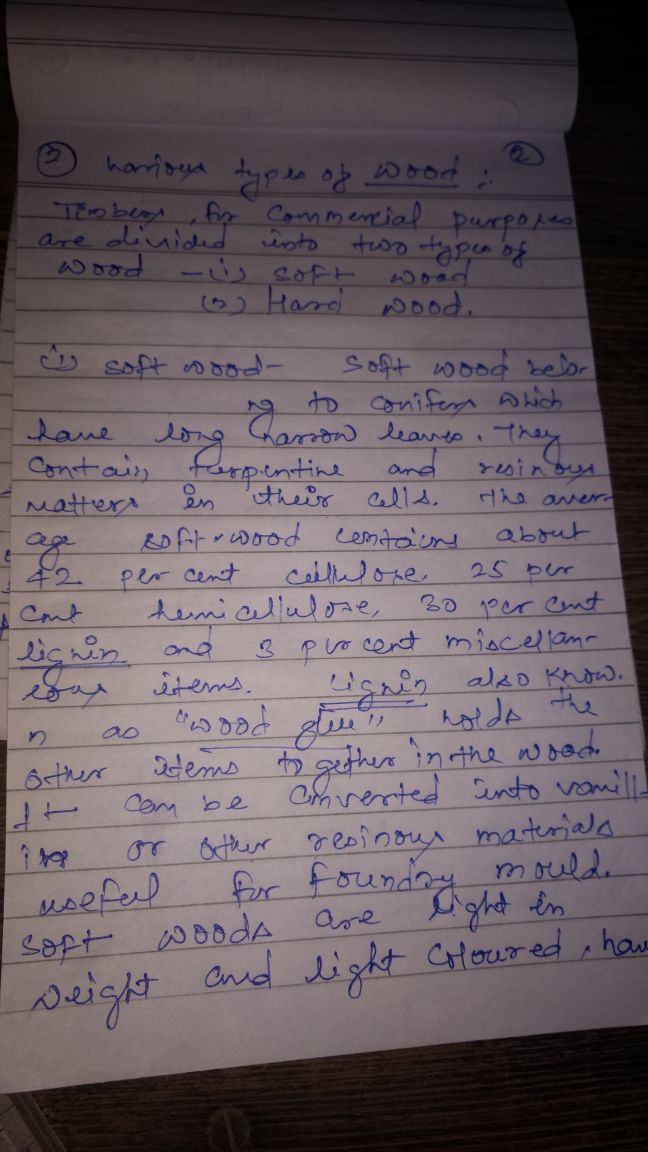 ② various types of wood : ②
Timbers, for commercial purposes
are divided into two types of
wood - (1) soft wood
(2) Hard wood.
(1) soft wood- soft wood belo-
ng to conifers which
have long narrow leaves. They
contain turpentine and resinous
matters in their cells. The aver-
age soft-wood contains about
42 per cent cellulose, 25 per
cent hemicellulose, 30 per cent
lignin and 3 per cent miscellan-
eous items. Lignin also know.
n as "wood glue", holds the
other items together in the wood.
It can be converted into vanill-
in or other resinous materials
useful for foundry mould.
soft woods are light in
weight and light coloured, have